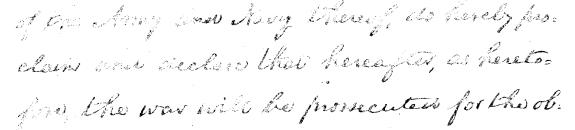 of the Army and Navy thereof, do hereby pro-
claim and declare that hereafter, as hereto-
fore, the war will be prossecuted for the ob-